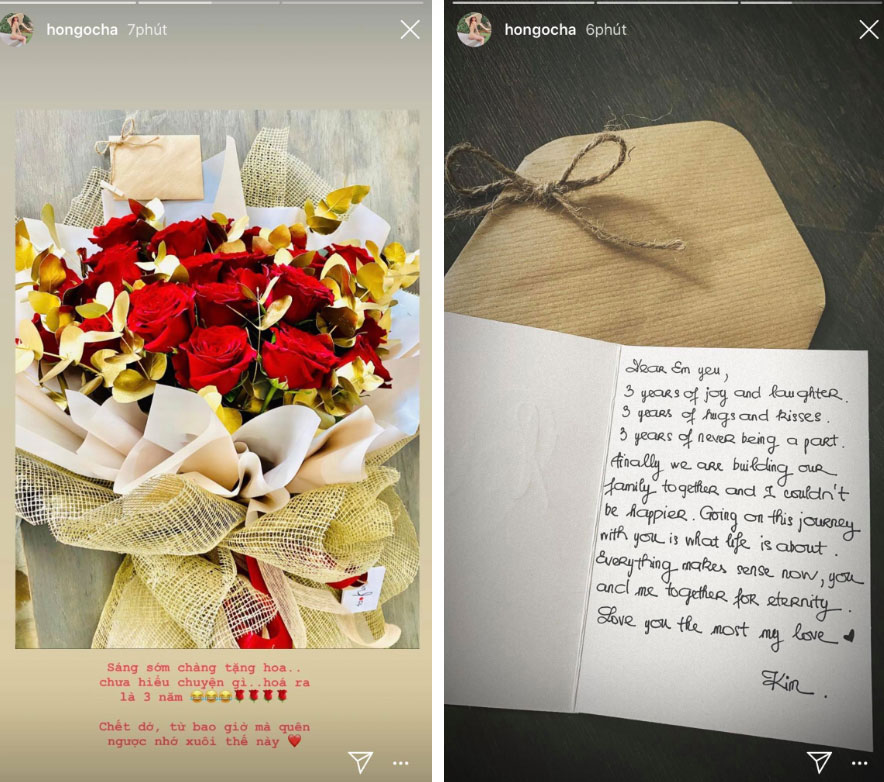 hongocha 7phút
Sáng sớm chàng tặng hoa..
chưa hiểu chuyện gì..hoá ra
là 3 năm 😂😂😂🌹🌹🌹🌹
Chết dở, từ bao giờ mà quên
ngược nhớ xuôi thế này ❤️
hongocha 6phút
Dear Em yeu,
3 years of joy and laughter.
3 years of hugs and kisses.
3 years of never being a part.
Finally we are building our
family together and I couldn't
be happier. Going on this journey
with you is what life is about.
Everything makes sense now, you
and me together for eternity.
Love you the most my love ♥
Kim.